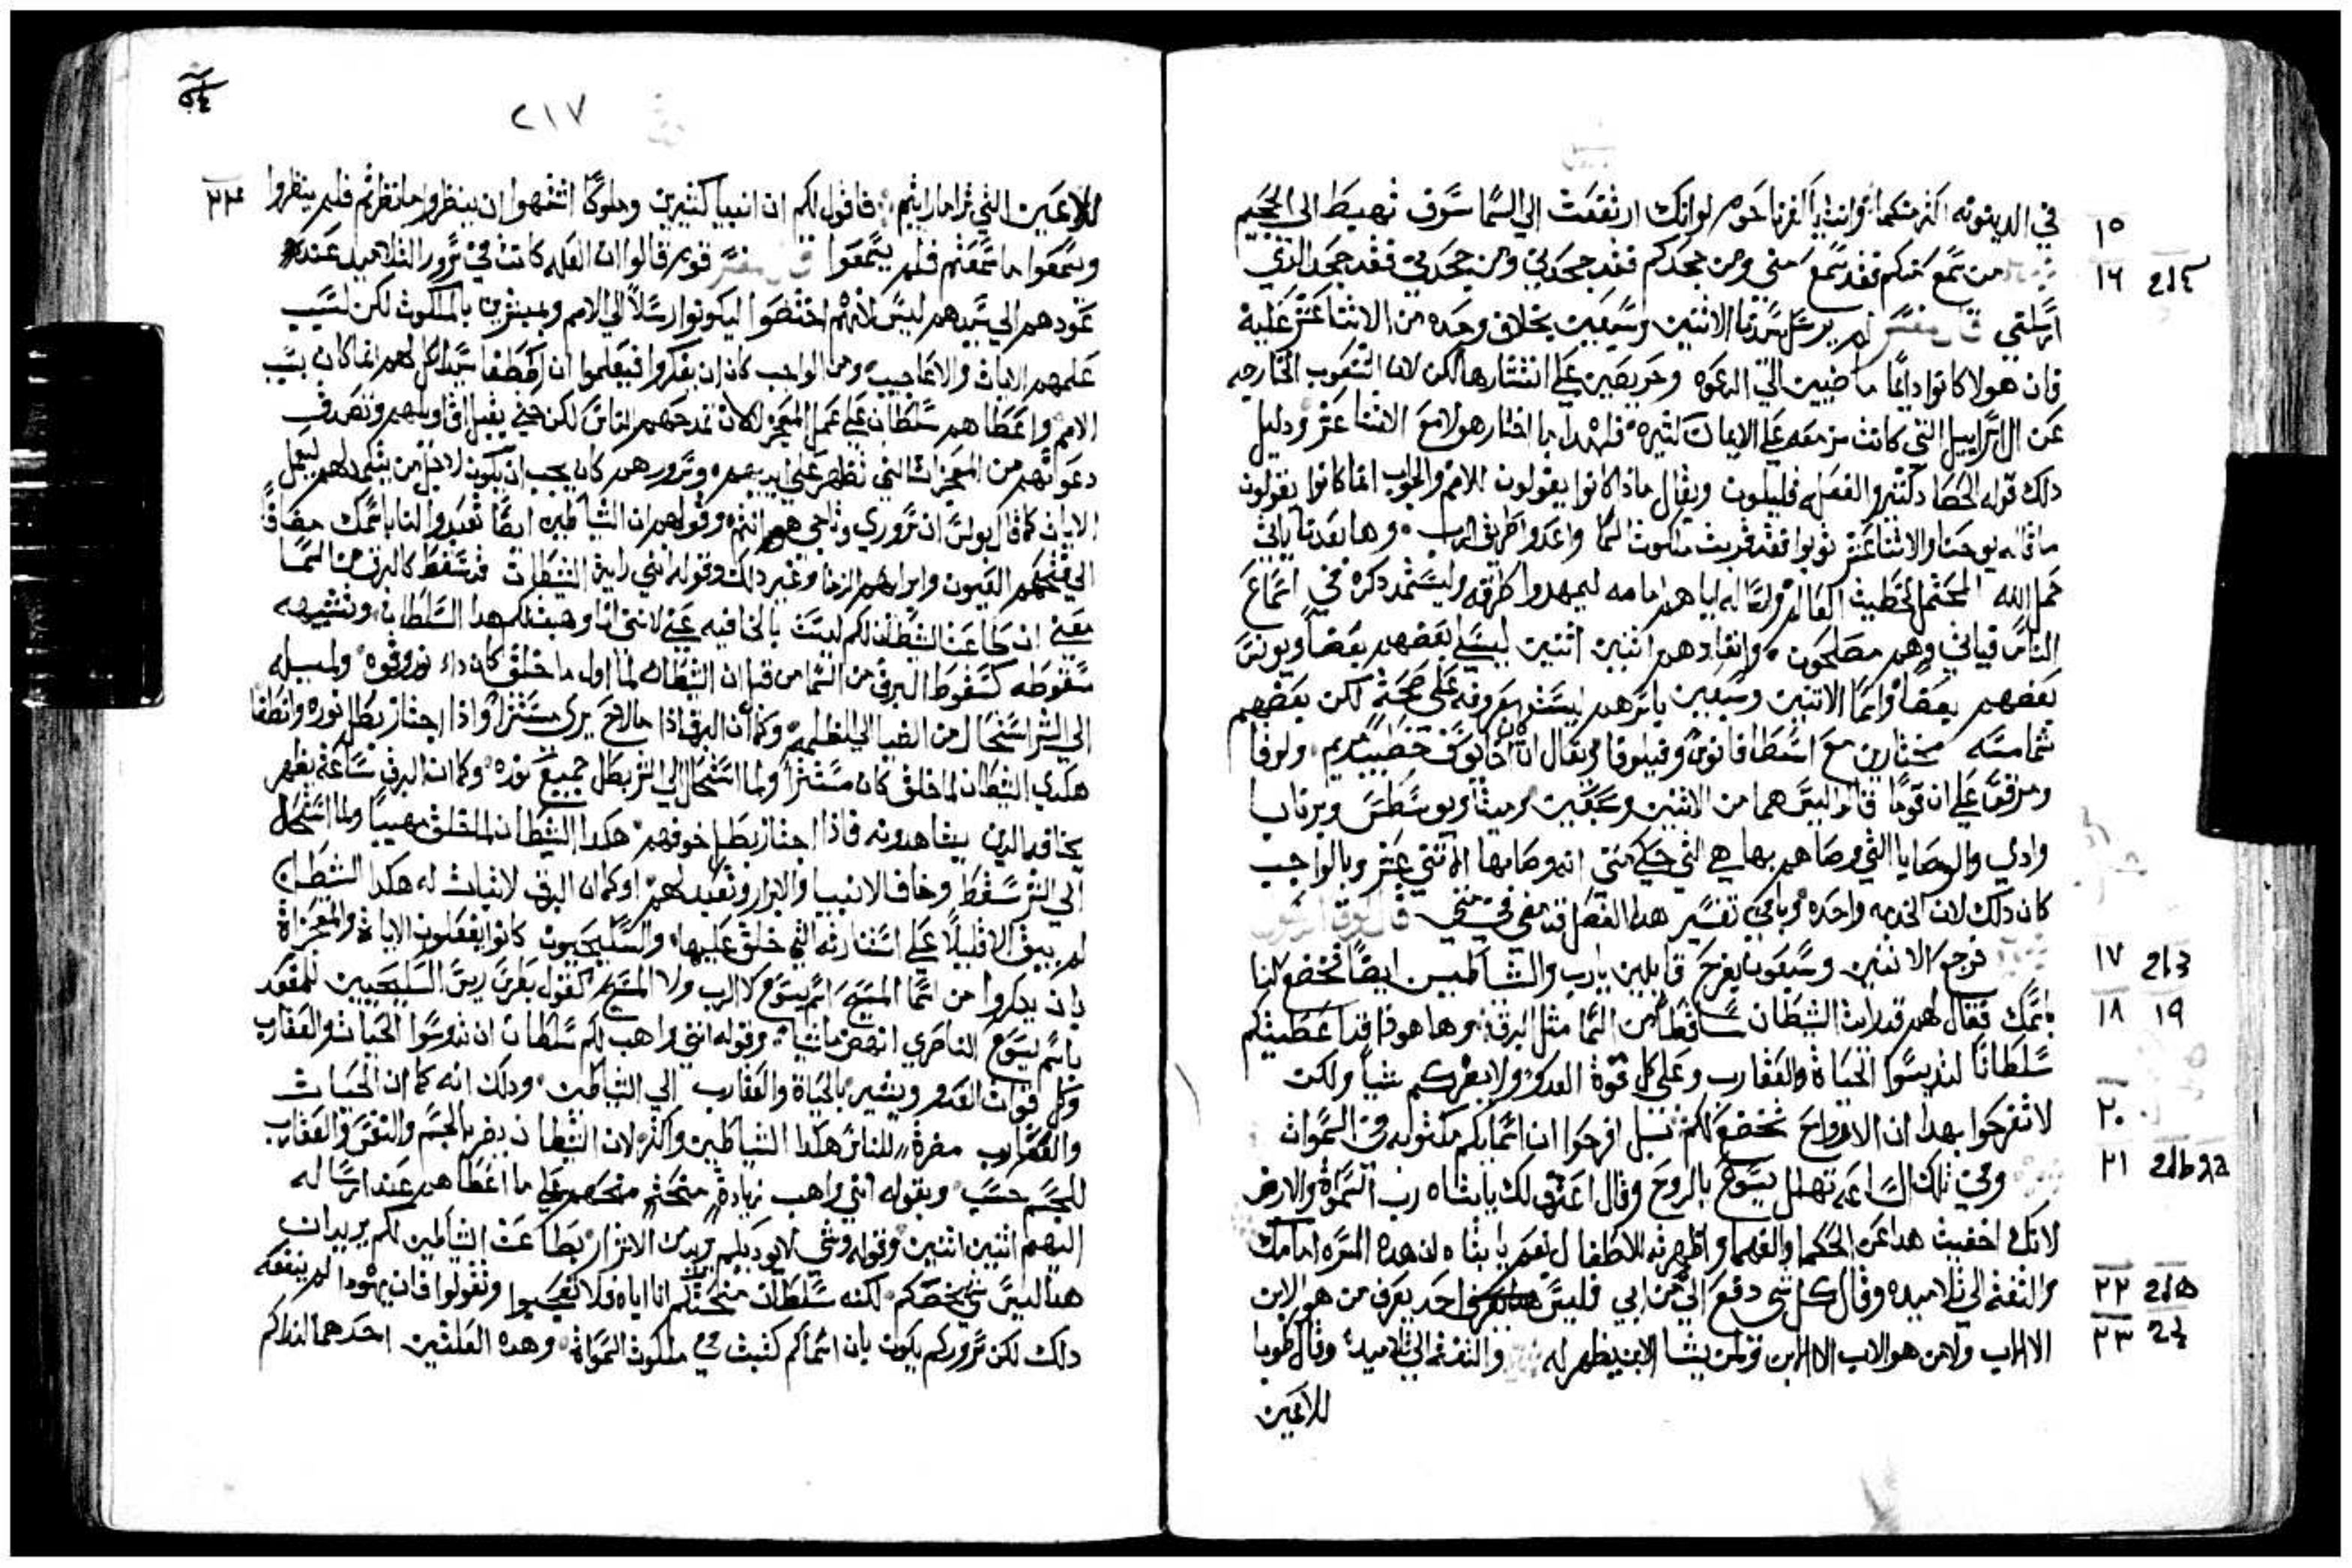 في الدينونه اكثر منكما وانت يا كفرناحوم لو انك ارتفعت الي السما سوف تهبط الي الجحيم
١٥
من سمع منكم فقد سمع مني ومن جحدكم فقد جحدني ومن جحدني فقد جحد الذي
١٦
ارسلني قال مفسر لم يرسل سيدنا الاثنين وسبعين بخلاف وحده من الاثنا عشر عليه
فان هولا كانوا دايمًا ماضيين الي الدعوه وحريصين علي انتشارها لكن لان الشعوب الخارجه
عن ال اسراييل التي كانت مزمعه علي الايمان كثيره فلهدا ما اختار هولا مع الاثنا عشر ودليل
دلك قوله الحصاد كثير والفعله قليلون ويقال ماذا كانوا يقولون للامم والجواب انما كانوا يقولون
ما قاله يوحنا والاثنا عشر توبوا فقد قربت ملكوت السما واعدوا طريق الرب وها بعدنا ياتي
حمل الله المحتمل خطيت العالم وارساله اياهم امامه ليمهدوا طرقه وليستمد دكره في اسماع
الناس فياتي وهم مصلحون وانفادهم اثنين اثنين ليسلي بعضهم بعضًا ويونس
بعضهم بعضًا واما الاثنين وسبعين باسرهم ليست معروفه علي صحه لكن بعضهم
شمامسه مختارين مع اسطافانوس وقيلوفا ويقال انه اخا يوسف خطيب مريم ولوقا
ومرقس علي ان قومًا قالوا ليس هما من الاثنين وسبعين ومتيا ويوسطس وبرنابا
وادي والوصايا التي وصاهم بها هي التي حكي متي انه وصا بها الاثني عشر وبالواجب
كان دلك لان الخدمه واحده وباقي تفسير هدا الفصل قد مضي في متي قال لوقا الرسول
فرجع الاثنين وسبعون بفرح قايلين يارب والشياطين ايضًا تخضع لنا
١٧
باسمك فقال لهم قد رايت الشيطان ساقطًا من السما مثل البرق وها هودا قد اعطيتكم
١٨ ١٩
سلطانًا لتدوسوا الحياة والعقارب وعلي كل قوة العدو ولا يضركم شيا ولكن
لا تفرحوا بهدا ان الارواح تخضع لكم بل افرحوا ان اسمايكم مكتوبه في السموات
٢٠
وفي تلك الساعه تهلل يسوع بالروح وقال اعترف لك يا ابتاه رب السموات والارض
٢١
لانك اخفيت هدا عن الحكما والفهما واظهرته للاطفال نعم يا ابتاه ان هده المسره امامك
والتفت الي تلاميده وقال كل شي دفع الي من ابي فليس احد يعرف من هو الابن
٢٢
الا الاب ولا من هو الاب الا الابن ولمن يشا الابن يظهر له والتفت الي تلاميده وقال طوبا
٢٣
للاعين
٢١٧
للاعين التي ترا ما رايتم فاقول لكم ان انبيا كثيرين وملوكًا اشتهوا ان ينظروا ما نظرتم فلم ينظروا
ويسمعوا ما سمعتم فلم يسمعوا قال مفسر قوم قالوا ان العله كانت في سرور التلاميد عند
عودهم الي سيدهم ليس لانهم اختصوا ليكونوا رسلًا الي الامم ومبشرين بالملكوت لكن لسبب
عملهم الايات والاعاجيب ومن الواجب كان ان يفكروا فيعلموا ان اصطفا سيدنا لهم انما كان بسبب
الامم واعطاهم سلطان علي عمل المعجز لا لان تمدحهم الناس لكن حتي يقبل اقاويلهم وتصدق
دعواتهم من المعجزات التي تظهر علي ايديهم وسرورهم كان يجب ان يكون لاجل من يتكلم لهم ليعمل
الايمان كما قال بولس ان سروري وتاجي هم انتم وقولهم ان الشياطين ايضًا تعبدوا لنا باسمك مضافًا
الي فتحهم العيون وابرايهم الزمنا وغير دلك وقوله انني رايت الشيطان قد سقط كالبرق من السما
معني ان طاعت الشيطان لكم ليست بالخافيه عني لانني انا وهبت لكم هدا السلطان وتشبيه
سقوطه كسقوط البرق من السما من قبل ان الشيطان لما اول ما خلق كان داء نور وقوه ولميله
الي الشر استحال من الضيا الي الظلمه وكما ان البرق اذا ما لاح يري مستنرًا واذا اجتاز بطل نوره وانطفا
هكدي الشيطان لما خلق كان مستنرًا ولما استحال الي الشر بطل جميع نوره وكما ان البرق ساعة يظهر
يخافه الدين يشاهدونه فاذا اجتاز بطل خوفهم هكدا الشيطان لما خلق مهيبًا ولما استحال
الي الشر سقط وخاف الانبيا والابرار وتعبد لهم وكما ان البرق لا ثبات له هكدا الشيطان
لم يبق الا قليلًا علي استنارته التي خلق عليها والسليحيون كانوا يفعلون الاياة والمعجزاة
بان يدكروا من اسما المسيح اسم يسوع لا الرب ولا المسيح كقول بطرس ريس السليحيين للمقعد
باسم يسوع الناصري انهض ماشيا وقوله انني واهب لكم سلطان ان تدوسوا الحيات والعقارب
وكل قوات العدو ويشير بالحياة والعقارب الي الشياطين ودلك انه كما ان الحيات
والعقارب مضرة للناس هكدا الشياطين واكثر لان الشيطان يضر بالجسم والنفس والعقارب
للجسم حسب وبقوله انني واهب زيادة منحته منحهم علي ما اعطاهم عند ارساله
اليهم اثنين اثنين وقوله وشي لا يوديكم يريد ان
هدا ليس شي يخصكم لكنه سلطان منحتكم انا اياه فلا تعجبوا وتقولوا فان يهودا لم ينفعه
دلك لكن سروركم يكون بان اسماكم كتبت في ملكوت السمواة وهده العلتين احدهما لتداكم